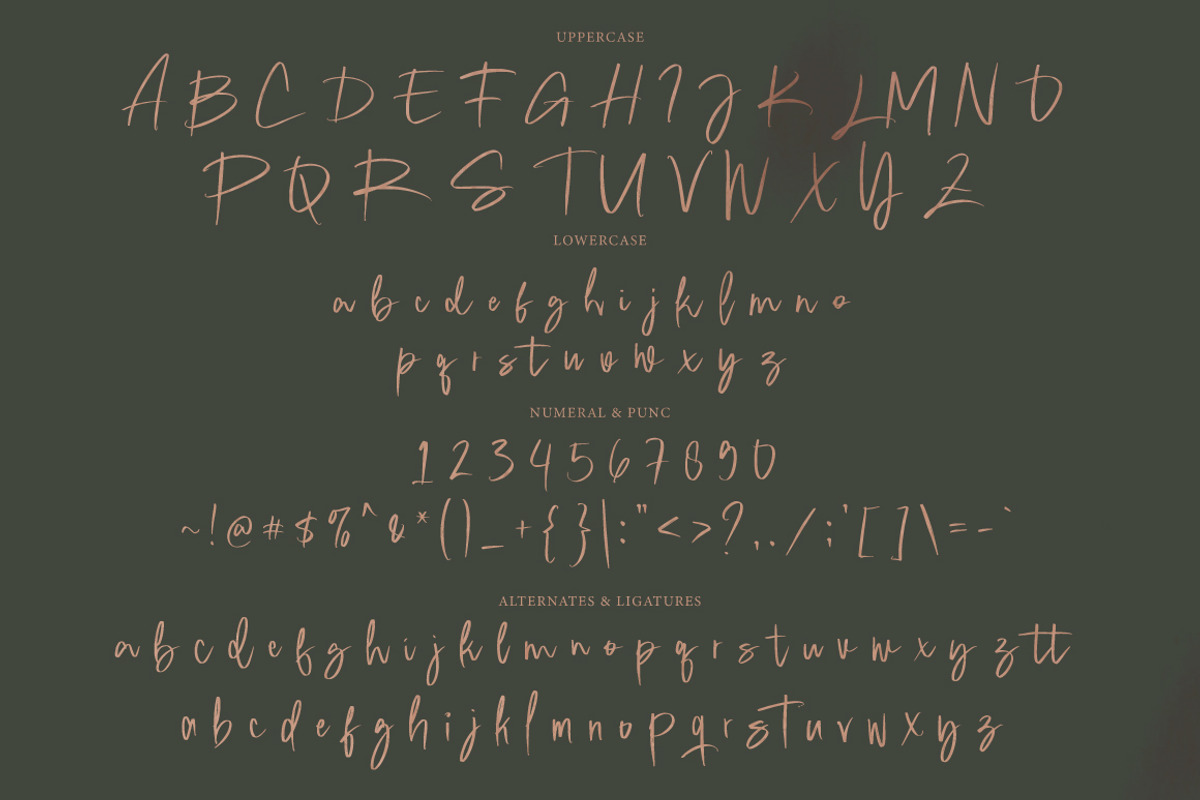 UPPERCASE
A B C D E F G H I J K L M N O
P Q R S T U V W X Y Z
LOWERCASE
a b c d e f g h i j k l m n o
p q r s t u v w x y z
NUMERAL & PUNC
1 2 3 4 5 6 7 8 9 0
~ ! @ # $ % ^ & * ( ) _ + { } | : " < > ? , . / ; ' [ ] \ = - `
ALTERNATES & LIGATURES
a b c d e f g h i j k l m n o p q r s t u v w x y z tt
a b c d e f g h i j k l m n o p q r s t u v w x y z